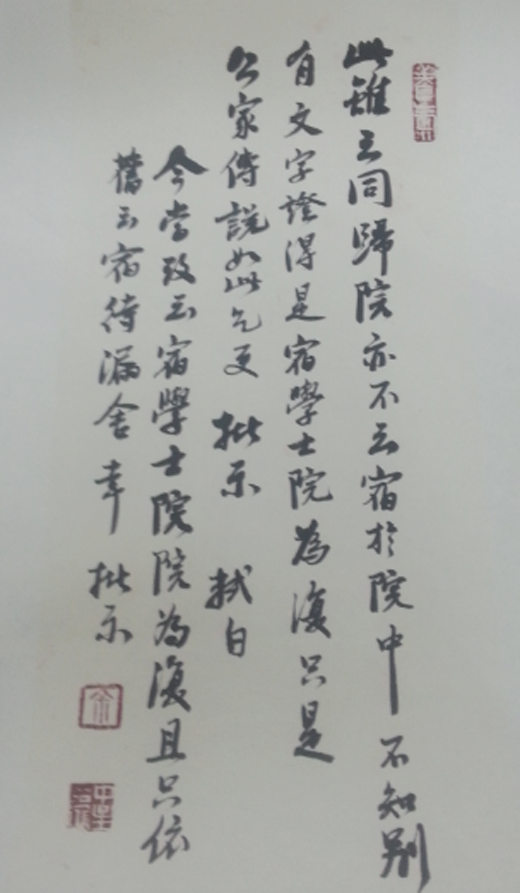 此雖云同歸院亦不云宿於院中不知別
有文字證得是宿學士院為復只是
公家傳說如此乞更批示 軾白
今當改云宿學士院院為復且只依
舊云宿待漏舍幸批示